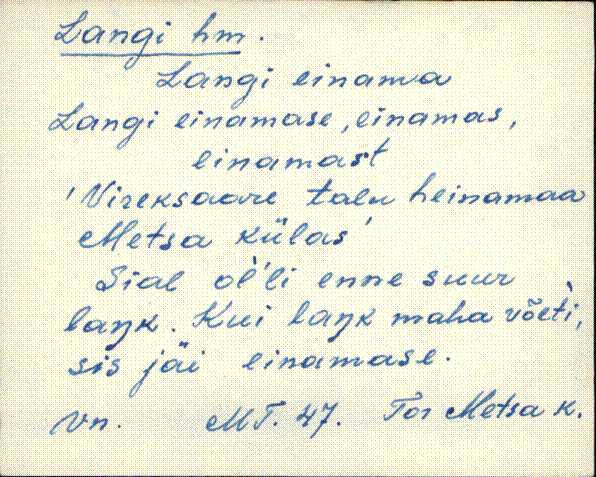 Langi hm.
Langi einama
Langi einamase, einamas,
einamast
'Vireksaare talu heinamaa
Metsa külas'
Sial ol̀'li enne suur
laŋk. Kui laŋk maha võet̀i,
sis jäi einamase.
Vn. MT. 47. Tor Metsa k.